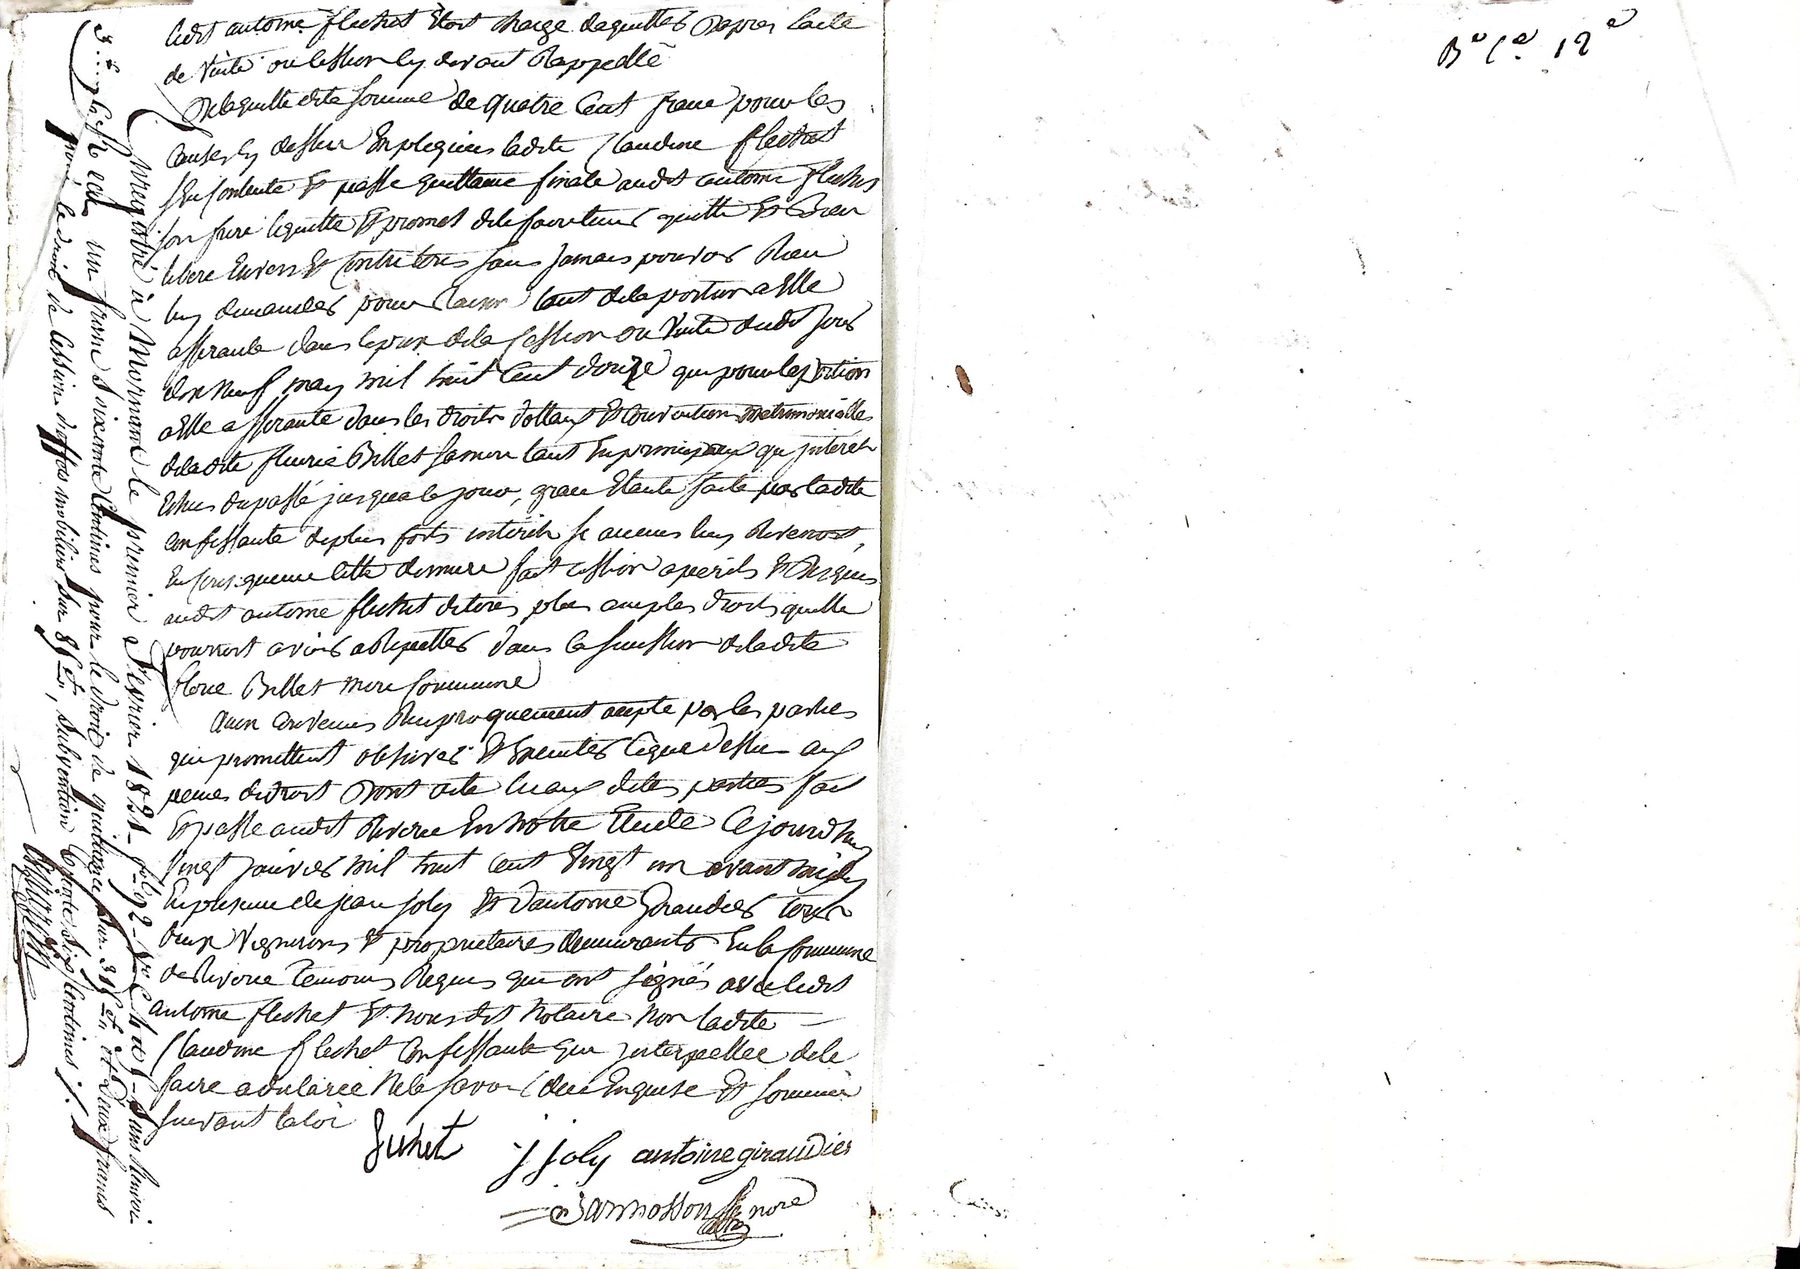 ledit antoine flechet Etoit charge daquitter dapres lacte
de Vente ou cession cy devant Rappellé
De laquelle dite somme de quatre Cent franc pour les
causes cy dessus Expliquées ladite Claudine flechet
Se contente Et passe quittance finale audit antoine flechet
son frere lequitte Et promet de le faire tenir quitte Et Bien
libere Envers Et Contre tous sans Jamais pouvoir Rien
luy demander pour Raison tant de la portion a Elle
afferante dans le prix de la Cession ou Vente dudit Jour
dix Neuf may mil huit Cent douze que pour la portion
a Elle afferante dans les droits dottaux Et Convention matrimonialles
de la dite fleurie Billet sa mere tant En principaux qu interets
Echus du passé jusqua ce jour, grace Etante faite par ladite
Confessante de plus forts interets si aucuns luy Revenoit,
En Consequence cette derniere fait cession a perils Et Risques
audit antoine flechet de tous plus amples droits quelle
pourroit avoir a Repetter dans la Succession de la dite
fleurie Billet mere Commune
Ainsi Convenu Reciproquement accepté par les parties
qui promettent observer Et Executer Ce que dessus aux
peines de droit Dont acte lu aux dites parties fait
Et passé audit Riverie En notre Etude Cejourdhuy
Vingt janvier mil huit Cent Vingt un avant midy
En presence de jean joly Et dantoine Giraudier tous
deux Vignerons Et proprietaires demeurants En la Commune
de Riverie temoins Requis qui ont signés avec ledit
antoine flechet Et Nous dit Notaire Non ladite
Claudine flechet Confessante qui interpellee de le
faire a declaree Ne le savoir de ce Enquise Et Sommée
suivant la loi
flechet
j joly antoine giraudier
Jannosson nore
Enregistré à Mornant le premier Fevrier 1821 fo 92 Vo C 4 et 5 Sans Renvoi
Reçu un franc Soixante Centimes pour le droit de quittance Sur 315 f et deux francs
pour le droit de Cession d'effets mobiliers Sur 85 f, subvention trente six Centimes
Bn Ce 12e